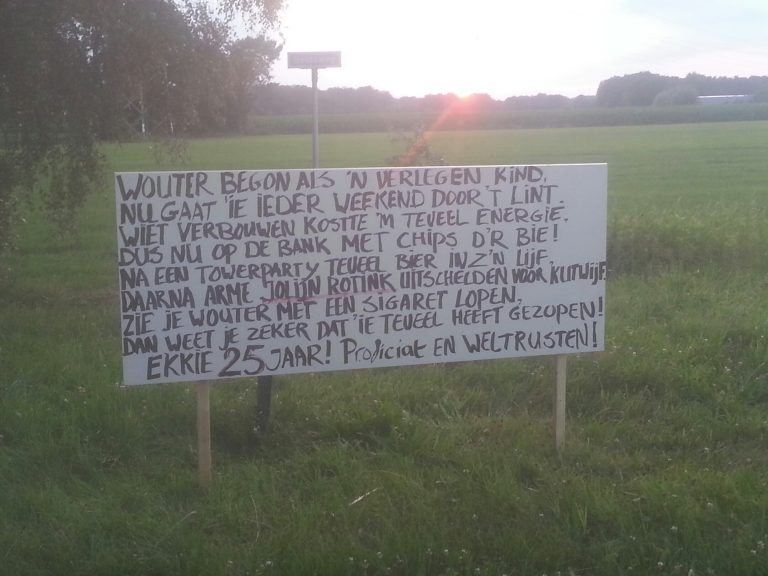 WOUTER BEGON ALS 'N VERLEGEN KIND.
NU GAAT 'IE IEDER WEEKEND DOOR 'T LINT.
WIET VERBOUWEN KOSTTE 'M TEVEEL ENERGIE.
DUS NU OP DE BANK MET CHIPS D'R BIE!
NA EEN TOWERPARTY TEVEEL BIER IN Z'N LIJF,
DAARNA ARME JOLIJN ROTINK UITSCHELDEN VOOR KUTWIJF
ZIE JE WOUTER MET EEN SIGARET LOPEN,
DAN WEET JE ZEKER DAT 'IE TEVEEL HEEFT GEZOPEN!
EKKIE 25 JAAR! Proficiat EN WELTRUSTEN!